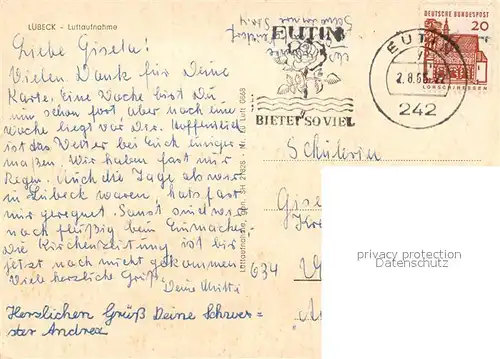 LÜBECK - Luftaufnahme
Liebe Gisela!
Vielen Dank für Deine
Karte. Eine Woche bist Du
nun schon fort, aber noch eine
Woche liegt vor Dir. Hoffentlich
ist das Wetter bei Euch einiger
maßen. Wir haben fast nur
Regen. Auch die Tage als wir
in Lübeck waren, hats fast
nur geregnet. Sonst sind wir
noch fleißig beim Einmachen.
Die Kirchenzeitung ist bis
jetzt noch nicht gekommen.
Viele herzliche Grüße
Deine Mutti
Herzlichen Grüß Deine Schwes-
ter Andrea
Luftaufnahme, gen. SH 21828 - Nr. zu Luft 0665
EUTIN
BIETET SO VIEL
EUTIN
2.8.66
242
DEUTSCHE BUNDESPOST
20
LORSCH/HESSEN
Schülerin
Gise
634
privacy protection
Datenschutz